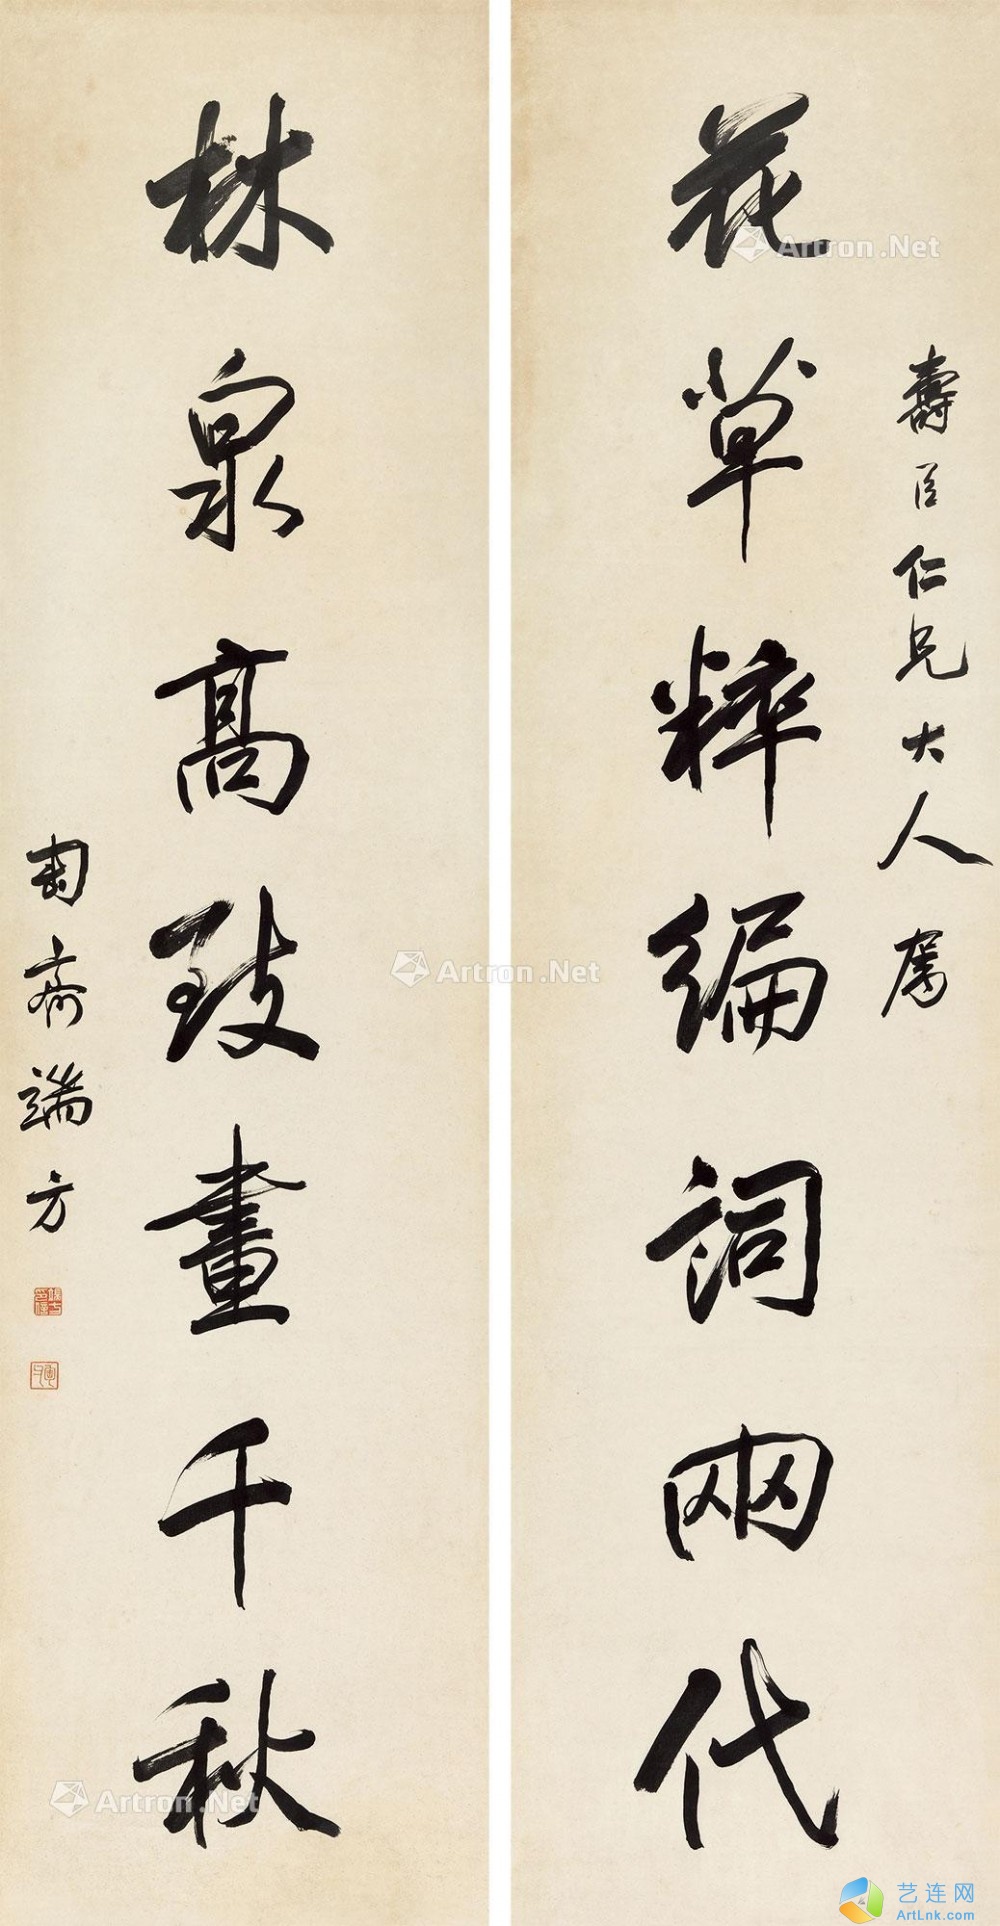 壽臣仁兄大人属
花草粹編詞兩代
林泉高致畫千秋
匋齋端方
Artron.Net
Artron.Net
Artron.Net
艺连网
ArtLnk.com